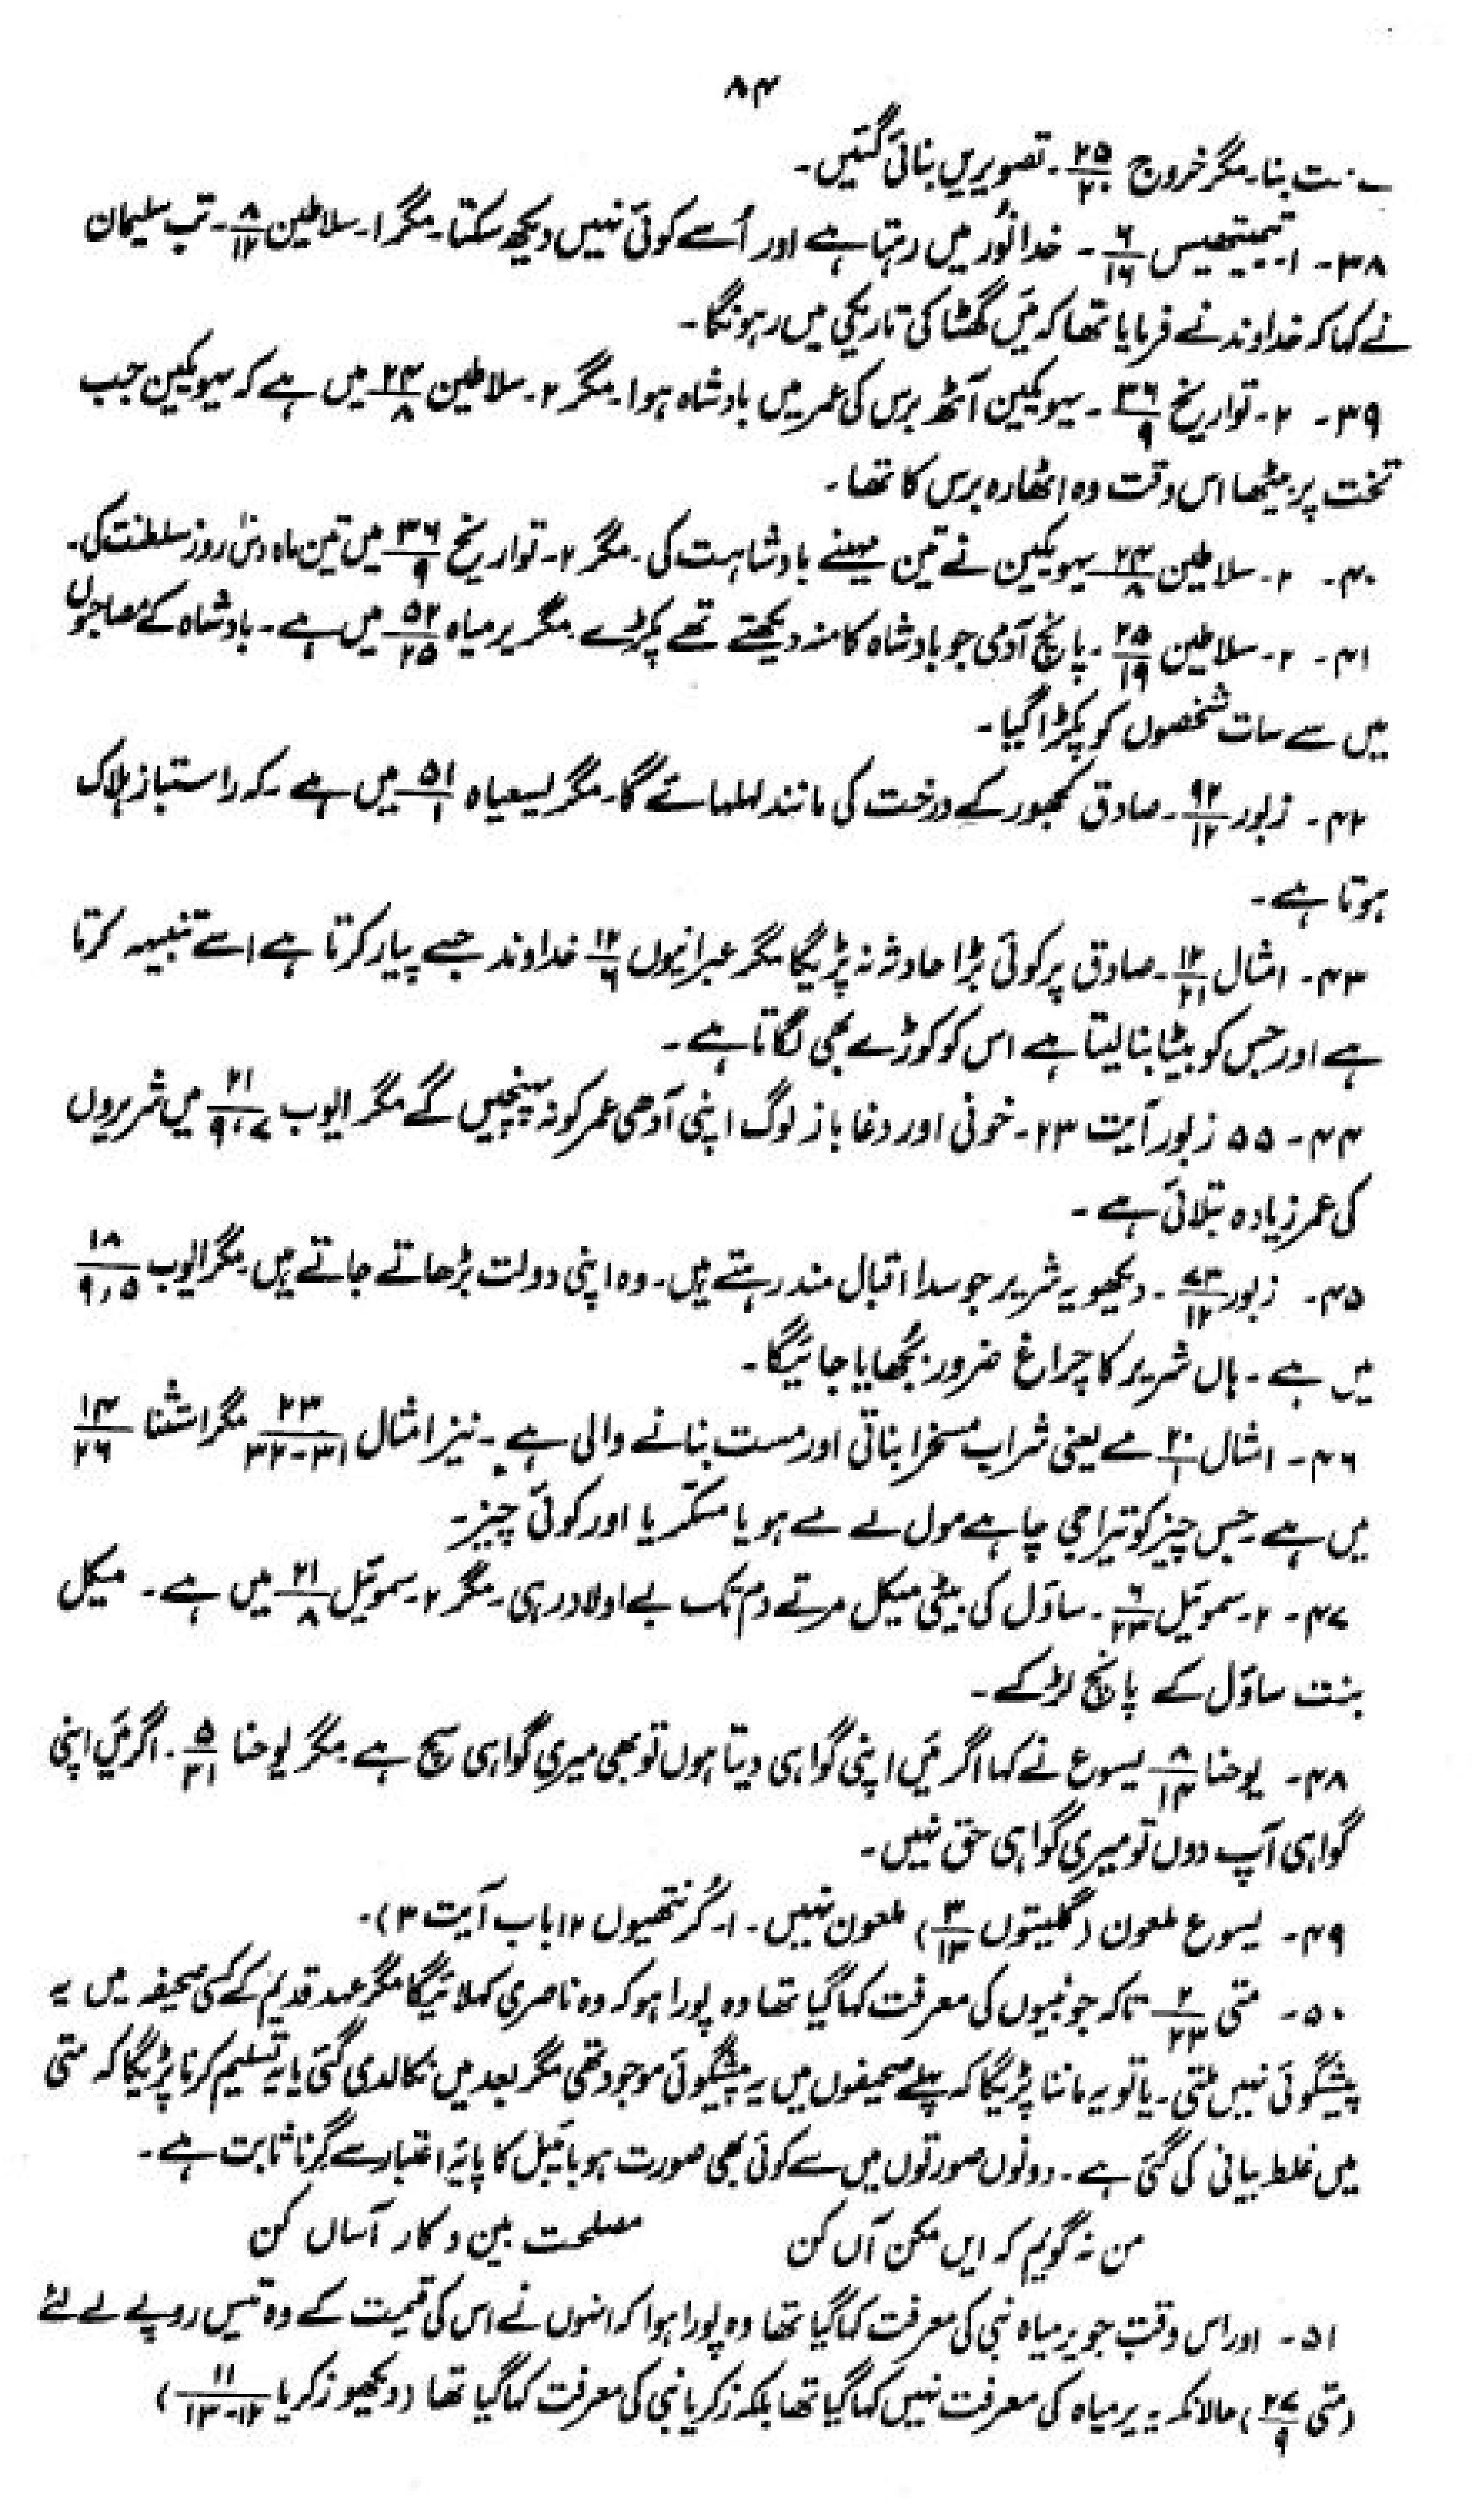 ۸۴
ت بنا۔ مگر خروج ۲۵/۲۰۔ تصویریں بنائی گئیں۔
۳۸۔ ۱۔ تیمتھیس ۶/۱۶۔ خدا نُور میں رہتا ہے اور اُسے کوئی نہیں دیکھ سکتا۔ مگر ۱۔ سلاطین ۸/۱۲۔ تب سلیمان
نے کہا کہ خداوند نے فرمایا تھا کہ میں گھٹا کی تاریکی میں رہونگا۔
۳۹۔ ۲۔ تواریخ ۳۶/۹۔ یہویکین آٹھ برس کی عمر میں بادشاہ ہوا۔ مگر ۲۔ سلاطین ۲۴/۸ میں ہے کہ یہویکین جب
تخت پر بیٹھا اس وقت وہ اٹھارہ برس کا تھا۔
۴۰۔ ۲۔ سلاطین ۲۴/۸ یہویکین نے تین مہینے بادشاہت کی۔ مگر ۲۔ تواریخ ۳۶/۹ میں تین ماہ دس روز سلطنت کی۔
۴۱۔ ۲۔ سلاطین ۲۵/۱۹۔ پانچ آدمی جو بادشاہ کا منہ دیکھتے تھے پکڑے۔ مگر یرمیاہ ۵۲/۲۵ میں ہے۔ بادشاہ کے مصاحبوں
میں سے سات شخصوں کو پکڑا گیا۔
۴۲۔ زبور ۹۲/۱۲۔ صادق کھجور کے درخت کی مانند لہلہائے گا۔ مگر یسعیاہ ۵۱/۱ میں ہے۔ کہ راستباز ہلاک
ہوتا ہے۔
۴۳۔ امثال ۱۲/۲۱۔ صادق پر کوئی بڑا حادثہ نہ پڑیگا مگر عبرانیوں ۱۲/۶ خداوند جسے پیار کرتا ہے اسے تنبیہہ کرتا
ہے اور جس کو بیٹا بنا لیتا ہے اس کو کوڑے بھی لگاتا ہے۔
۴۴۔ ۵۵ زبور آیت ۲۳۔ خونی اور دغا باز لوگ اپنی آدھی عمر کو نہ پہنچیں گے مگر ایوب ۲۱/۷،۹ میں شریروں
کی عمر زیادہ بتلائی ہے۔
۴۵۔ زبور ۷۳/۱۲۔ دیکھو یہ شریر جو سدا اقبال مند رہتے ہیں۔ وہ اپنی دولت بڑھاتے جاتے ہیں۔ مگر ایوب ۱۸/۵،۹
میں ہے۔ ہاں شریر کا چراغ ضرور بُجھایا جائیگا۔
۴۶۔ امثال ۲۰/۱ مے یعنی شراب مسخرا بناتی اور مست بنانے والی ہے۔ نیز امثال ۲۳/۳۱-۳۲ مگر استثنا ۱۴/۲۶
میں ہے۔ جس چیز کو تیرا جی چاہے مول لے مے ہو یا مسکّر یا اور کوئی چیز۔
۴۷۔ ۲۔ سموئیل ۶/۲۳۔ ساؤل کی بیٹی میکل مرتے دم تک بے اولاد رہی۔ مگر ۲۔ سموئیل ۲۱/۸ میں ہے۔ میکل
بنت ساؤل کے پانچ لڑکے۔
۴۸۔ یوحنا ۸/۱۴ یسوع نے کہا اگر میں اپنی گواہی دیتا ہوں تو بھی میری گواہی سچ ہے۔ مگر یوحنا ۵/۳۱۔ اگر میں اپنی
گواہی آپ دوں تو میری گواہی حق نہیں۔
۴۹۔ یسوع ملعون (گلیتوں ۳/۱۳) ملعون نہیں۔ ۱۔ کُرنتھیوں ۱۲ باب آیت ۳)۔
۵۰۔ متی ۲/۲۳ تاکہ جو نبیوں کی معرفت کہا گیا تھا وہ پورا ہو کہ وہ ناصری کہلائیگا مگر عہد قدیم کے کسی صحیفہ میں یہ
پیشگوئی نہیں ملتی۔ یا تو یہ ماننا پڑیگا کہ پہلے صحیفوں میں یہ پیشگوئی موجود تھی مگر بعد میں نکالدی گئی یا یہ تسلیم کرنا پڑیگا کہ متی
میں غلط بیانی کی گئی ہے۔ دونوں صورتوں میں سے کوئی بھی صورت ہو بائیبل کا پایۂ اعتبار سے گرنا ثابت ہے۔
من نہ گویم کہ ایں مکن آں کن مصلحت بین و کار آساں کن
۵۱۔ اور اس وقت جو یرمیاہ نبی کی معرفت کہا گیا تھا وہ پورا ہوا کہ انہوں نے اس کی قیمت کے وہ تیس روپے لے لئے
(متی ۲۷/۹) حالانکہ یہ یرمیاہ کی معرفت نہیں کہا گیا تھا بلکہ زکریا نبی کی معرفت کہا گیا تھا (دیکھو زکریا ۱۱/۱۲-۱۳)